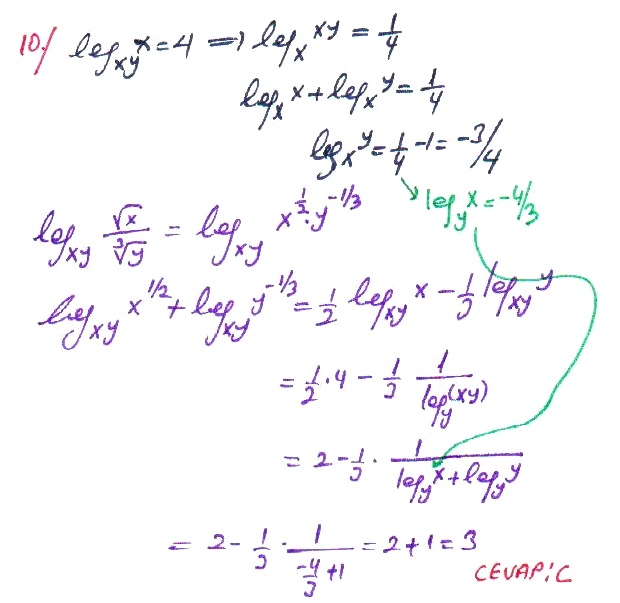 10./ log_xy x = 4 ⟹ log_x xy = 1/4
log_x x + log_x y = 1/4
log_x y = 1/4 - 1 = -3/4
→ log_y x = -4/3
log_xy √x / ∛y = log_xy x^(1/2) · y^(-1/3)
log_xy x^(1/2) + log_xy y^(-1/3) = 1/2 log_xy x - 1/3 log_xy y
= 1/2 · 4 - 1/3 1/(log_y (xy))
= 2 - 1/3 · 1/(log_y x + log_y y)
= 2 - 1/3 · 1/(-4/3 + 1) = 2 + 1 = 3
CEVAP: C